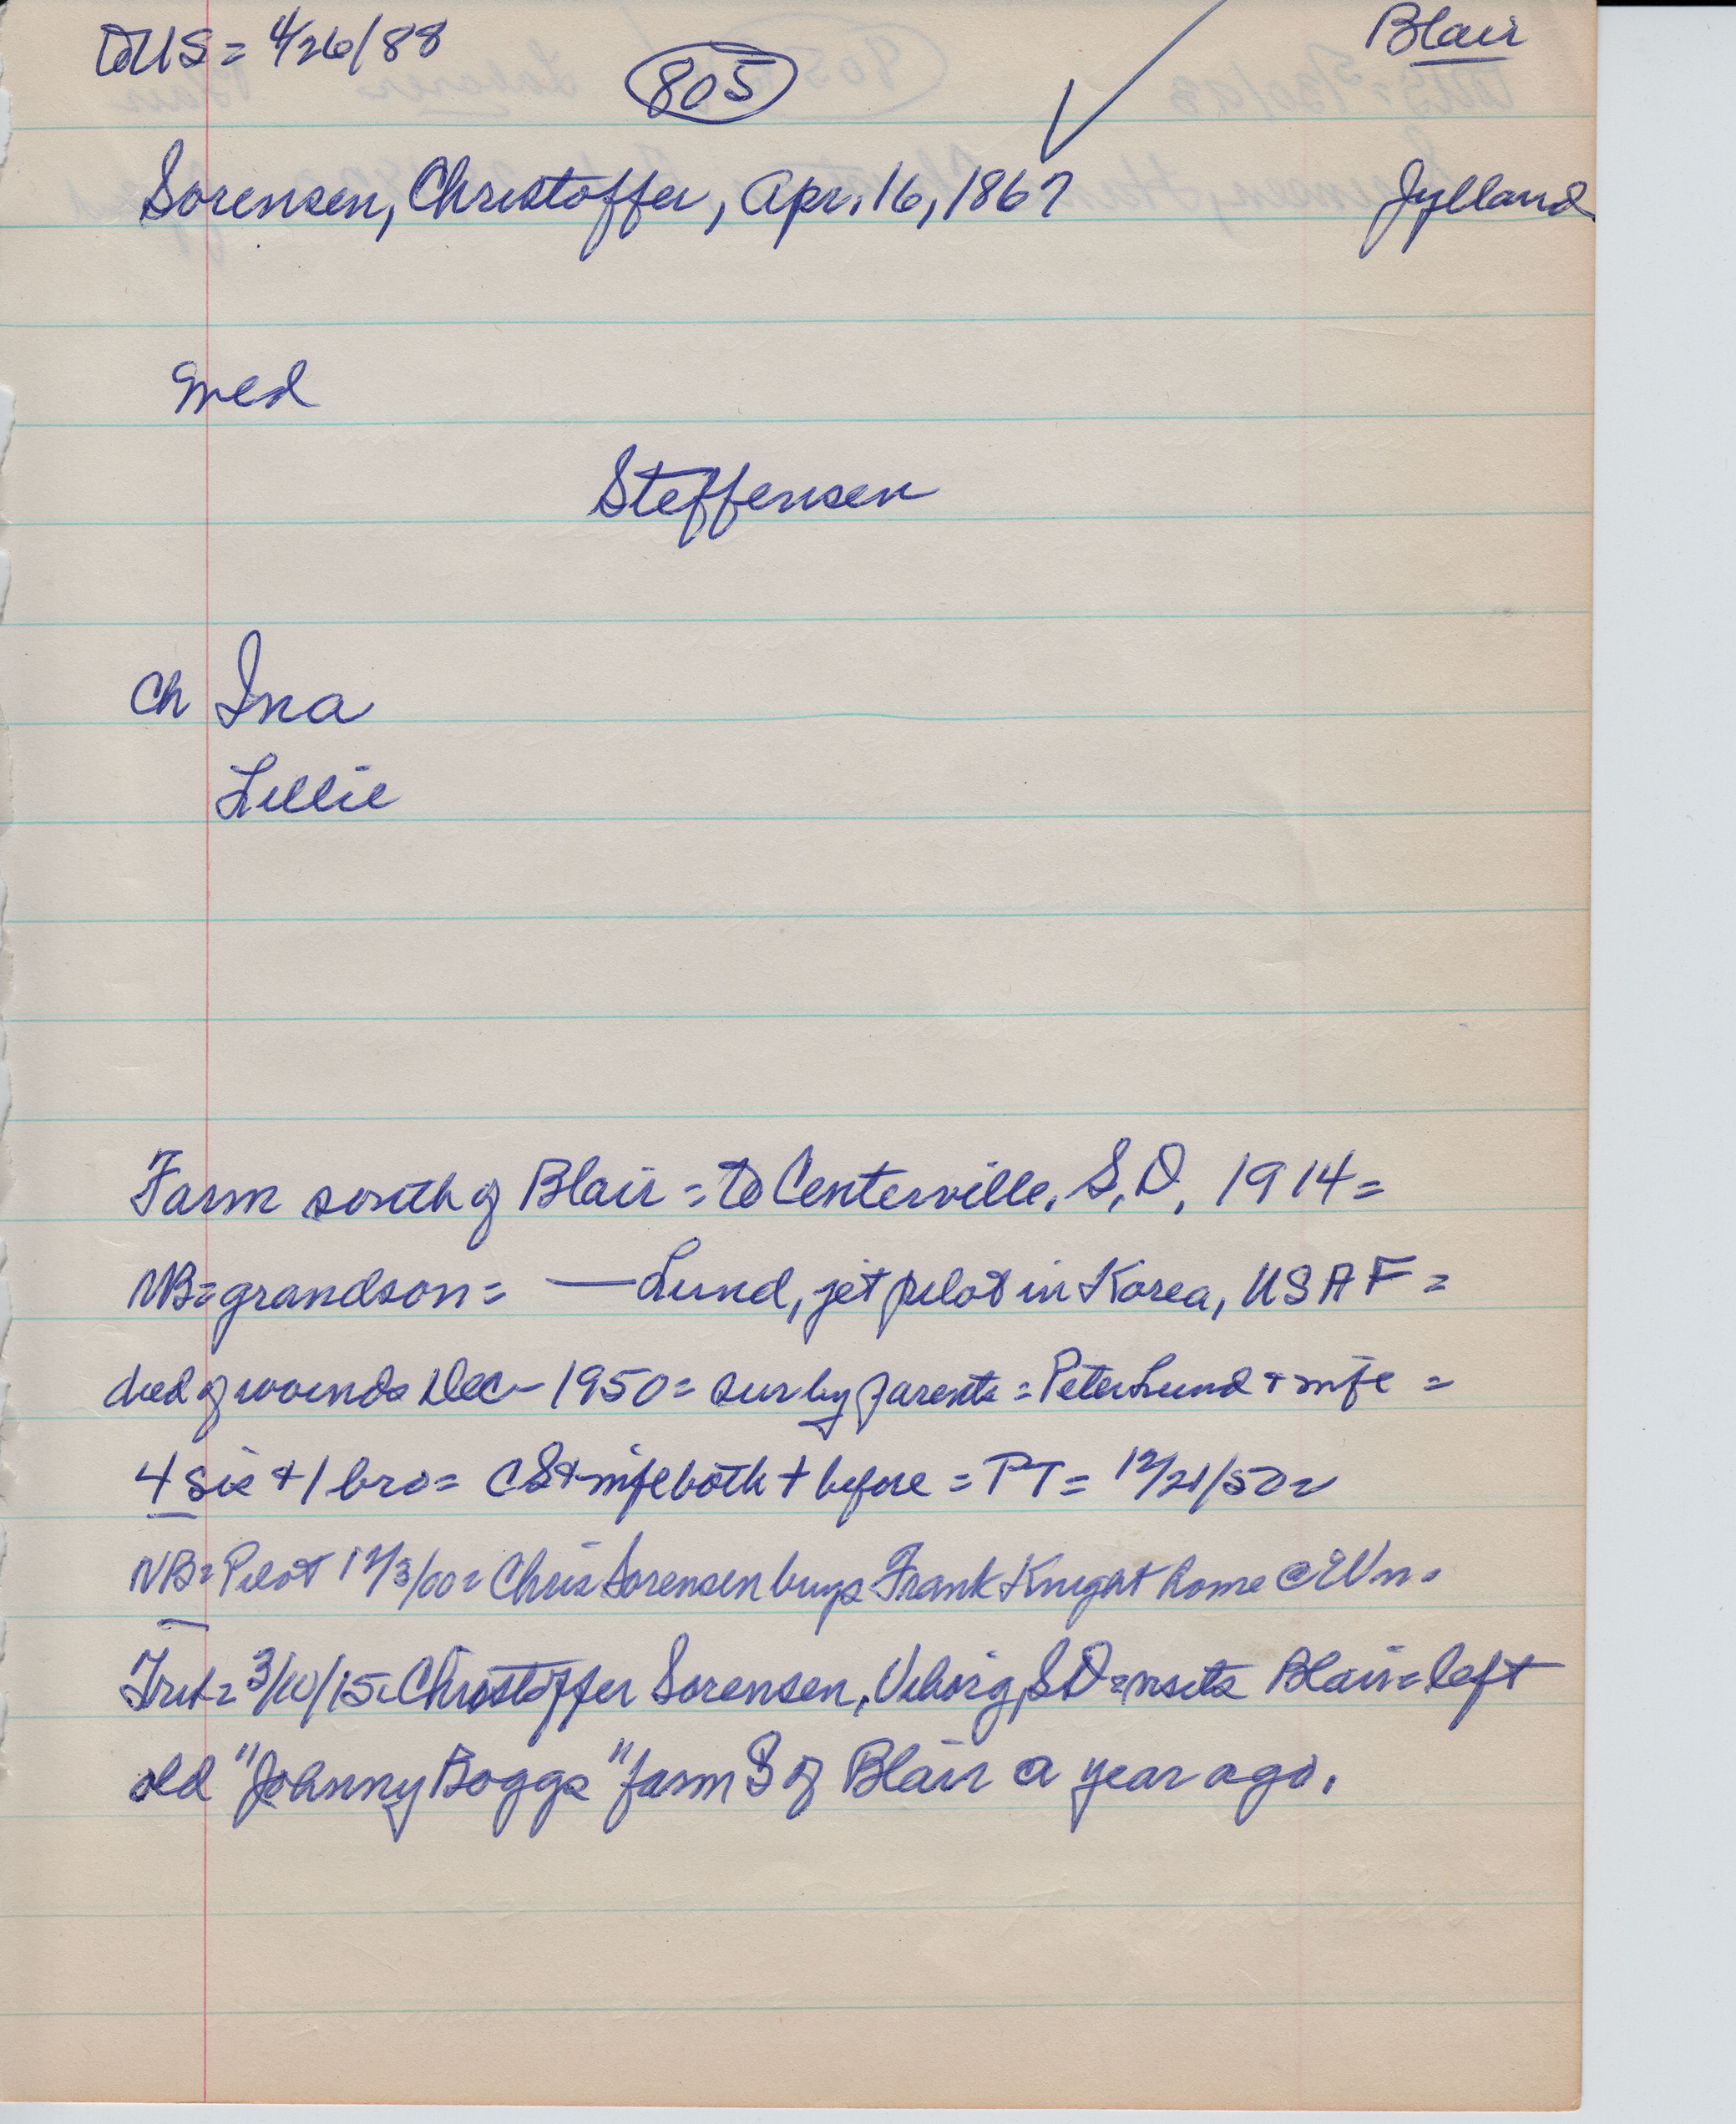 toUS = 4/26/88
805
Blair
Sorensen, Christoffer, Apr. 16, 1867
Jylland
med
Steffensen
Ch Ina
Lillie
Farm south of Blair = to Centerville, S.D. 1914 =
NB = grandson = — Lund, jet pilot in Korea, USAF =
died of wounds Dec - 1950 = sur by parents = Peter Lund + wife =
4 sis + 1 bro = CS + wife both + before = PT = 12/21/50 =
NB = Pilot 12/3/00 = Chris Sorensen buys Frank Knight home @
3/10/15 = Christoffer Sorensen, Viborg, SD = visits Blair = left
old "Johnny Boggs" farm S of Blair a year ago.